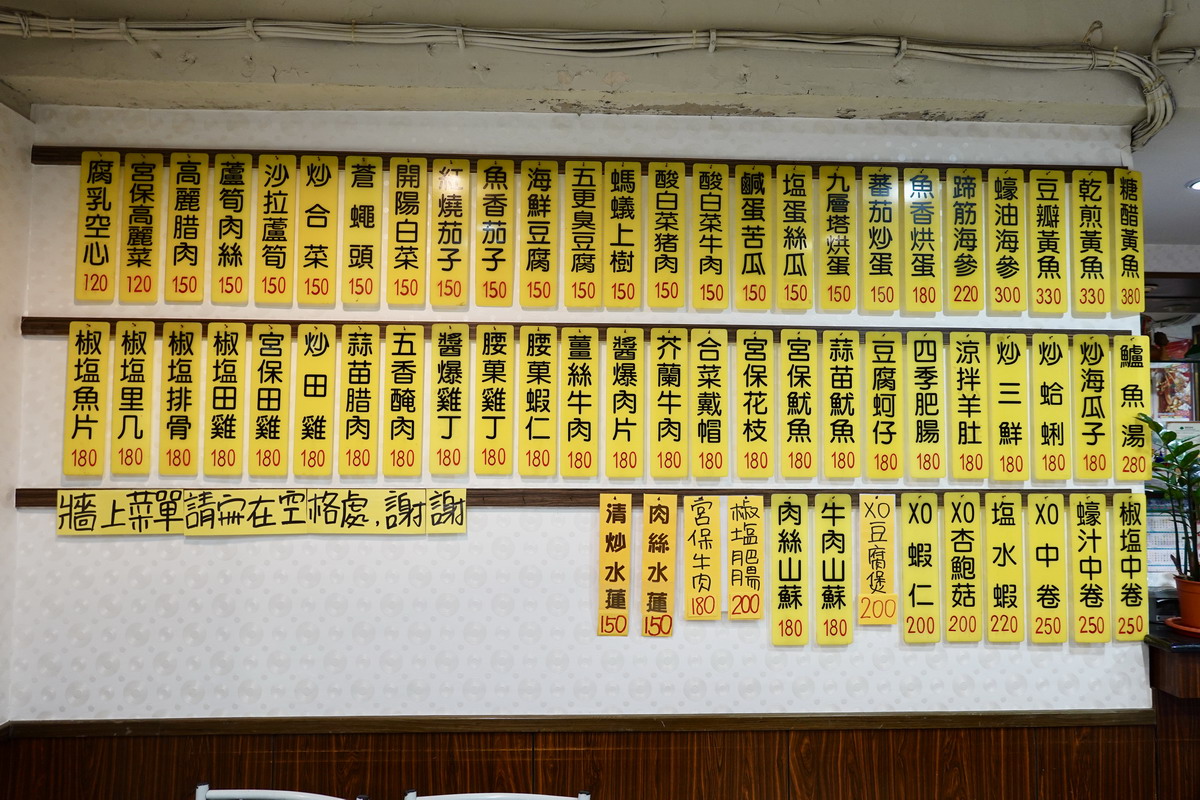 糖醋黃魚 380
乾煎黃魚 330
豆瓣黃魚 330
蠔油海參 300
蹄筋海參 220
魚香烘蛋 180
蕃茄炒蛋 150
九層塔烘蛋 150
塩蛋絲瓜 150
鹹蛋苦瓜 150
酸白菜牛肉 150
酸白菜猪肉 150
螞蟻上樹 150
五更臭豆腐 150
海鮮豆腐 150
魚香茄子 150
紅燒茄子 150
開陽白菜 150
蒼蠅頭 150
炒合菜 150
沙拉蘆筍 150
蘆筍肉絲 150
高麗腊肉 150
宮保高麗菜 120
腐乳空心 120
鱸魚湯 280
炒海瓜子 180
炒蛤蜊 180
炒三鮮 180
涼拌羊肚 180
四季肥腸 180
豆腐蚵仔 180
蒜苗魷魚 180
宮保魷魚 180
宮保花枝 180
合菜戴帽 180
芥蘭牛肉 180
醬爆肉片 180
薑絲牛肉 180
腰菓蝦仁 180
腰菓雞丁 180
醬爆雞丁 180
五香醃肉 180
蒜苗腊肉 180
炒田雞 180
宮保田雞 180
椒塩田雞 180
椒塩排骨 180
椒塩里几 180
椒塩魚片 180
椒塩中卷 250
蠔汁中卷 250
XO中卷 250
塩水蝦 220
XO杏鮑菇 200
XO蝦仁 200
XO豆腐煲 200
牛肉山蘇 180
肉絲山蘇 180
椒塩肥腸 200
宮保牛肉 180
肉絲水蓮 150
清炒水蓮 150
牆上菜單請寫在空格處,謝謝